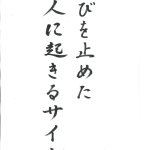 びを止めた
人に起きるサイ